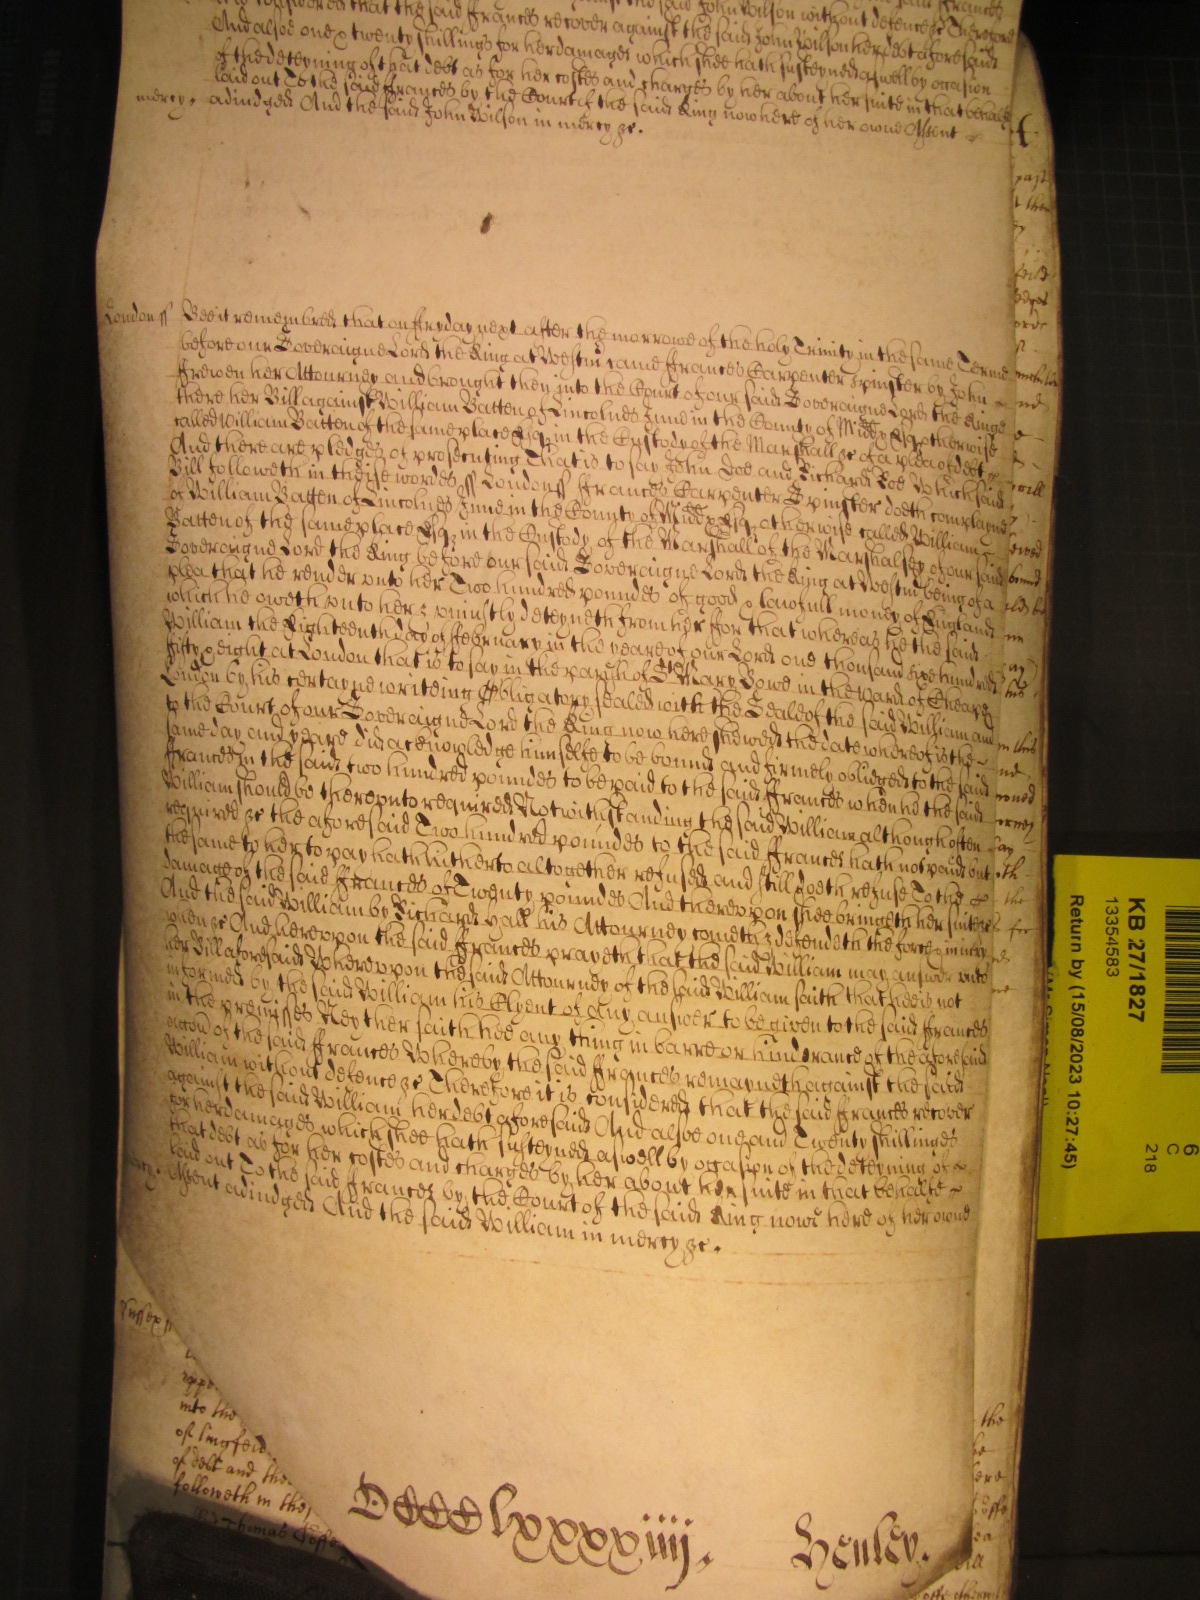 it is considered that the said Frances recover against the said John Wilson her debt aforesaid
And alsoe one & twenty shillings for her damages which shee hath susteyned aswell by occasion
of the deteyning of that debt as for her costes and charges by her about her suite in that behalfe
laid out To the said Frances by the Court of the said King now here of her owne Assent
mercy. adiudged And the said John Wilson in mercy &c.
London ss Bee it remembred that on ffryday next after the morrowe of the holy Trinity in this same Terme
before our Soveraigne Lord the King at Westm came ffrances Carpenter Spinster by John
ffrewen her Attourney and brought then into the Court of our said Soveraigne Lord the Kinge
there her Bill against William Batten of Lincolnes Inne in the County of Midd Esq otherwise
called William Batten of the same place Esq in the Custody of the Marshall &c of a plea of debt
And there are pledges of prosecuting That is to say John Doe and Richard Roe Which said
Bill followeth in theise wordes ss London ss ffrances Carpenter Spinster doeth complayne
of William Batten of Lincolnes Inne in the County of Midd Esq otherwise called William
Batten of the same place Esq in the Custody of the Marshall of the Marshalsey of our said
Soveraigne Lord the King before our said Soveraigne Lord the King at Westm being of a
plea that he render unto her Two hundred poundes of good & lawfull money of England
which he oweth unto her & uniustly deteyneth from her ffor that whereas he the said
William the Eighteenth day of ffebruary in the yeare of our Lord one thousand sixe hundred
fifty & eight at London that is to say in the parish of St Mary Bowe in the Ward of Cheape
London by his certayne writeing Obligatory sealed with the Seale of the said William and
to the Court of our Soveraigne Lord the King now here shewed the date whereof is the
same day and yeare did acknowledge himselfe to be bound and firmely obliged to the said
ffrances in the said two hundred poundes to be paid to the said ffrances when he the said
William should be thereunto required Notwithstanding the said William although often
required &c the aforesaid Two hundred poundes to the said ffrances hath not paid but
the same to her to pay hath hitherto altogether refused and still doeth refuse To the
damage of the said ffrances of Twenty poundes And thereupon shee bringeth her suite &c
And the said William by Richard Hall his Attourney cometh & defendeth the force & iniury
when &c And hereupon the said ffrances prayeth that the said William may answer unto
her Bill aforesaid Whereupon the said Attourney of the said William saith that hee is not
informed by the said William his Clyent of any answer to be given to the said ffrances
in the premisses Neyther saith hee any thing in barre or hindrance of the aforesaid
accon of the said ffrances Whereby the said ffrances remayneth against the said
William without defence &c Therefore it is considered that the said ffrances recover
against the said William her debt aforesaid And alsoe one and Twenty shillinges
for her damages which shee hath susteyned aswell by occasion of the deteyning of
that debt as for her costes and charges by her about her suite in that behalfe
laid out To the said ffrances by the Court of the said King nowe here of her owne
mercy. Assent adiudged And the said William in mercy &c.
Sussex ss
into the
of lingfeild
of debt and the
followeth in the
Thomas
DCCCClxxxxiiij. Henley.
KB 27/1827
13354583
Return by (15/08/2023 10:27:45)
6
C
218